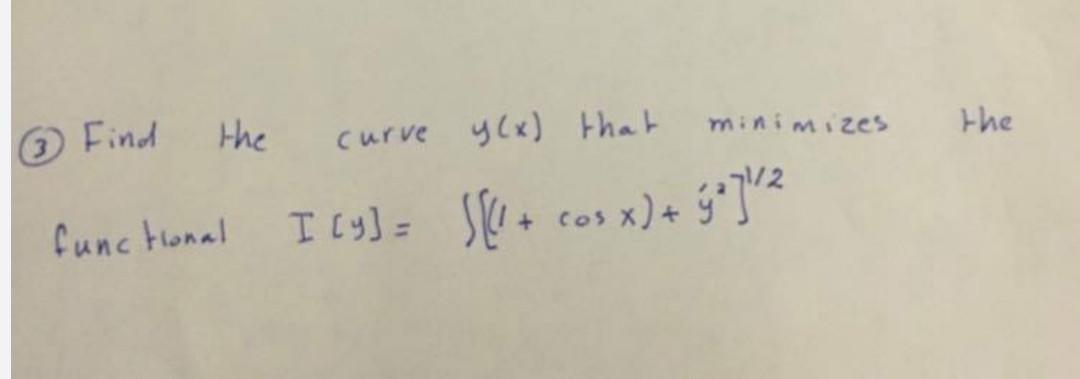 ③ Find the curve y(x) that minimizes the
functional I[y] = ∫[(1 + cos x) + y'²]^1/2